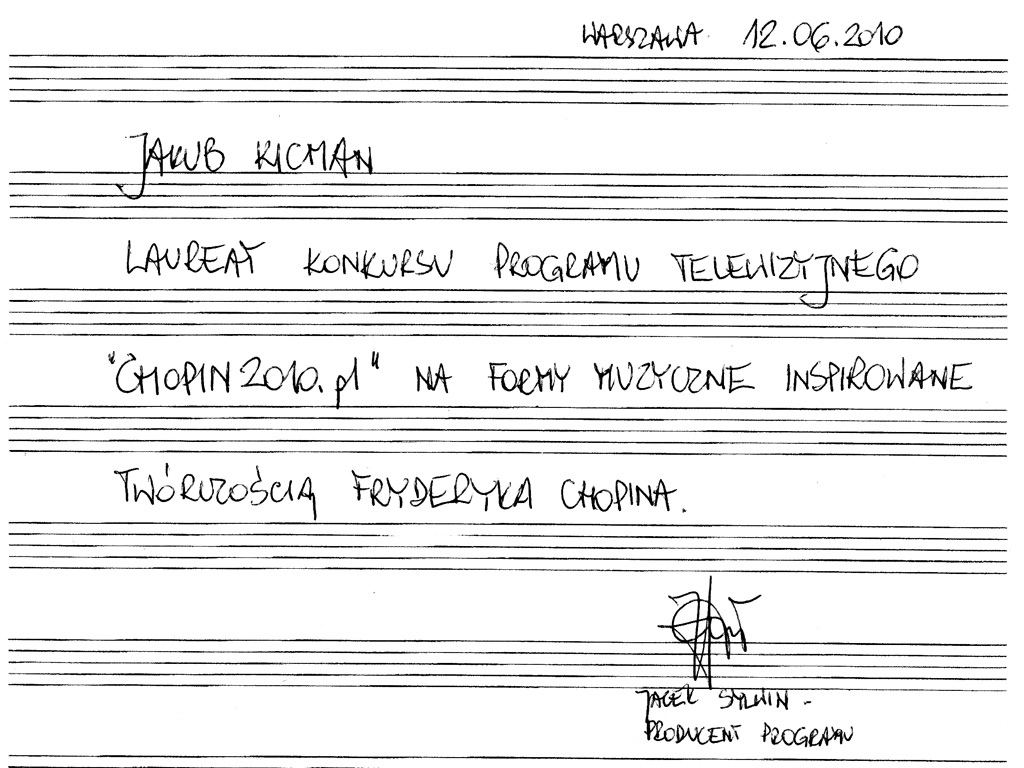 WARSZAWA 12.06.2010
JAKUB KICMAN
LAUREAT KONKURSU PROGRAMU TELEWIZYJNEGO
"CHOPIN2010.pl" NA FORMY MUZYCZNE INSPIROWANE
TWÓRCZOŚCIĄ FRYDERYKA CHOPINA.
JACEK SYLWIN -
PRODUCENT PROGRAMU